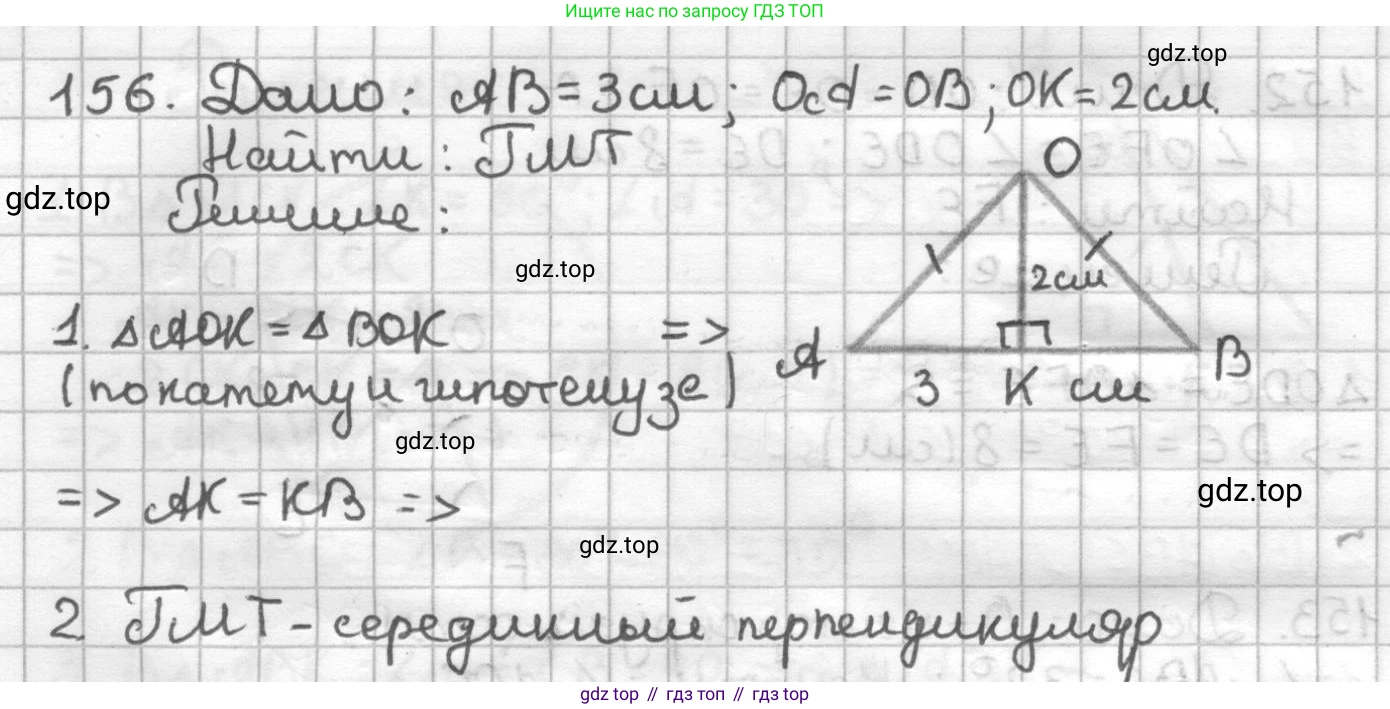 Ищите нас по запросу ГДЗ ТОП
gdz.top
156. Дано: AB = 3 см; OA = OB; OK = 2 см.
Найти: ГМТ
gdz.top
Решение:
O
gdz.top
2 см
1. △AOK = △BOK =>
(по катету и гипотенузе)
A
B
3 K см
gdz.top
=> AK = KB =>
gdz.top
gdz.top
2. ГМТ - серединный перпендикуляр
gdz top // гдз топ // гдз top